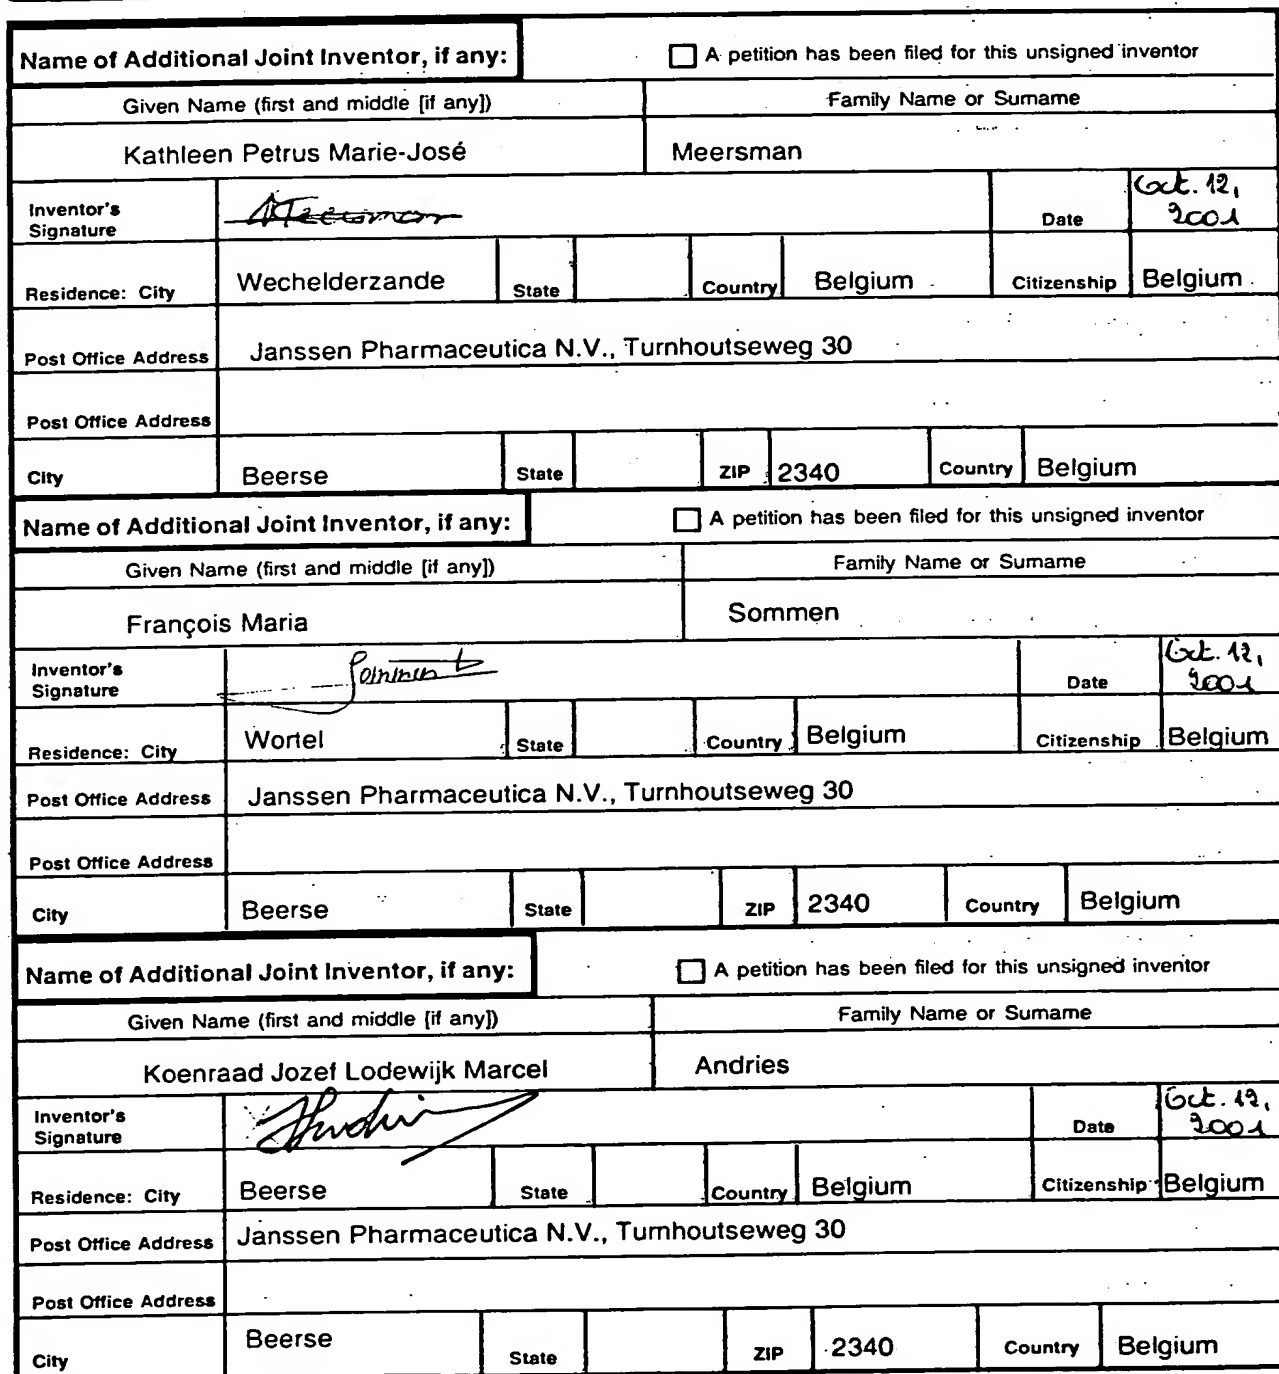 Name of Additional Joint Inventor, if any: A petition has been filed for this unsigned inventor
Given Name (first and middle [if any]) Family Name or Surname
Kathleen Petrus Marie-José Meersman
Inventor's Signature Meersman Date Oct. 12, 2001
Residence: City Wechelderzande State Country Belgium Citizenship Belgium
Post Office Address Janssen Pharmaceutica N.V., Turnhoutseweg 30
Post Office Address
City Beerse State ZIP 2340 Country Belgium
Name of Additional Joint Inventor, if any: A petition has been filed for this unsigned inventor
Given Name (first and middle [if any]) Family Name or Surname
François Maria Sommen
Inventor's Signature Sommen Date Oct. 12, 2001
Residence: City Wortel State Country Belgium Citizenship Belgium
Post Office Address Janssen Pharmaceutica N.V., Turnhoutseweg 30
Post Office Address
City Beerse State ZIP 2340 Country Belgium
Name of Additional Joint Inventor, if any: A petition has been filed for this unsigned inventor
Given Name (first and middle [if any]) Family Name or Surname
Koenraad Jozef Lodewijk Marcel Andries
Inventor's Signature Date Oct. 12, 2001
Residence: City Beerse State Country Belgium Citizenship Belgium
Post Office Address Janssen Pharmaceutica N.V., Turnhoutseweg 30
Post Office Address
City Beerse State ZIP 2340 Country Belgium